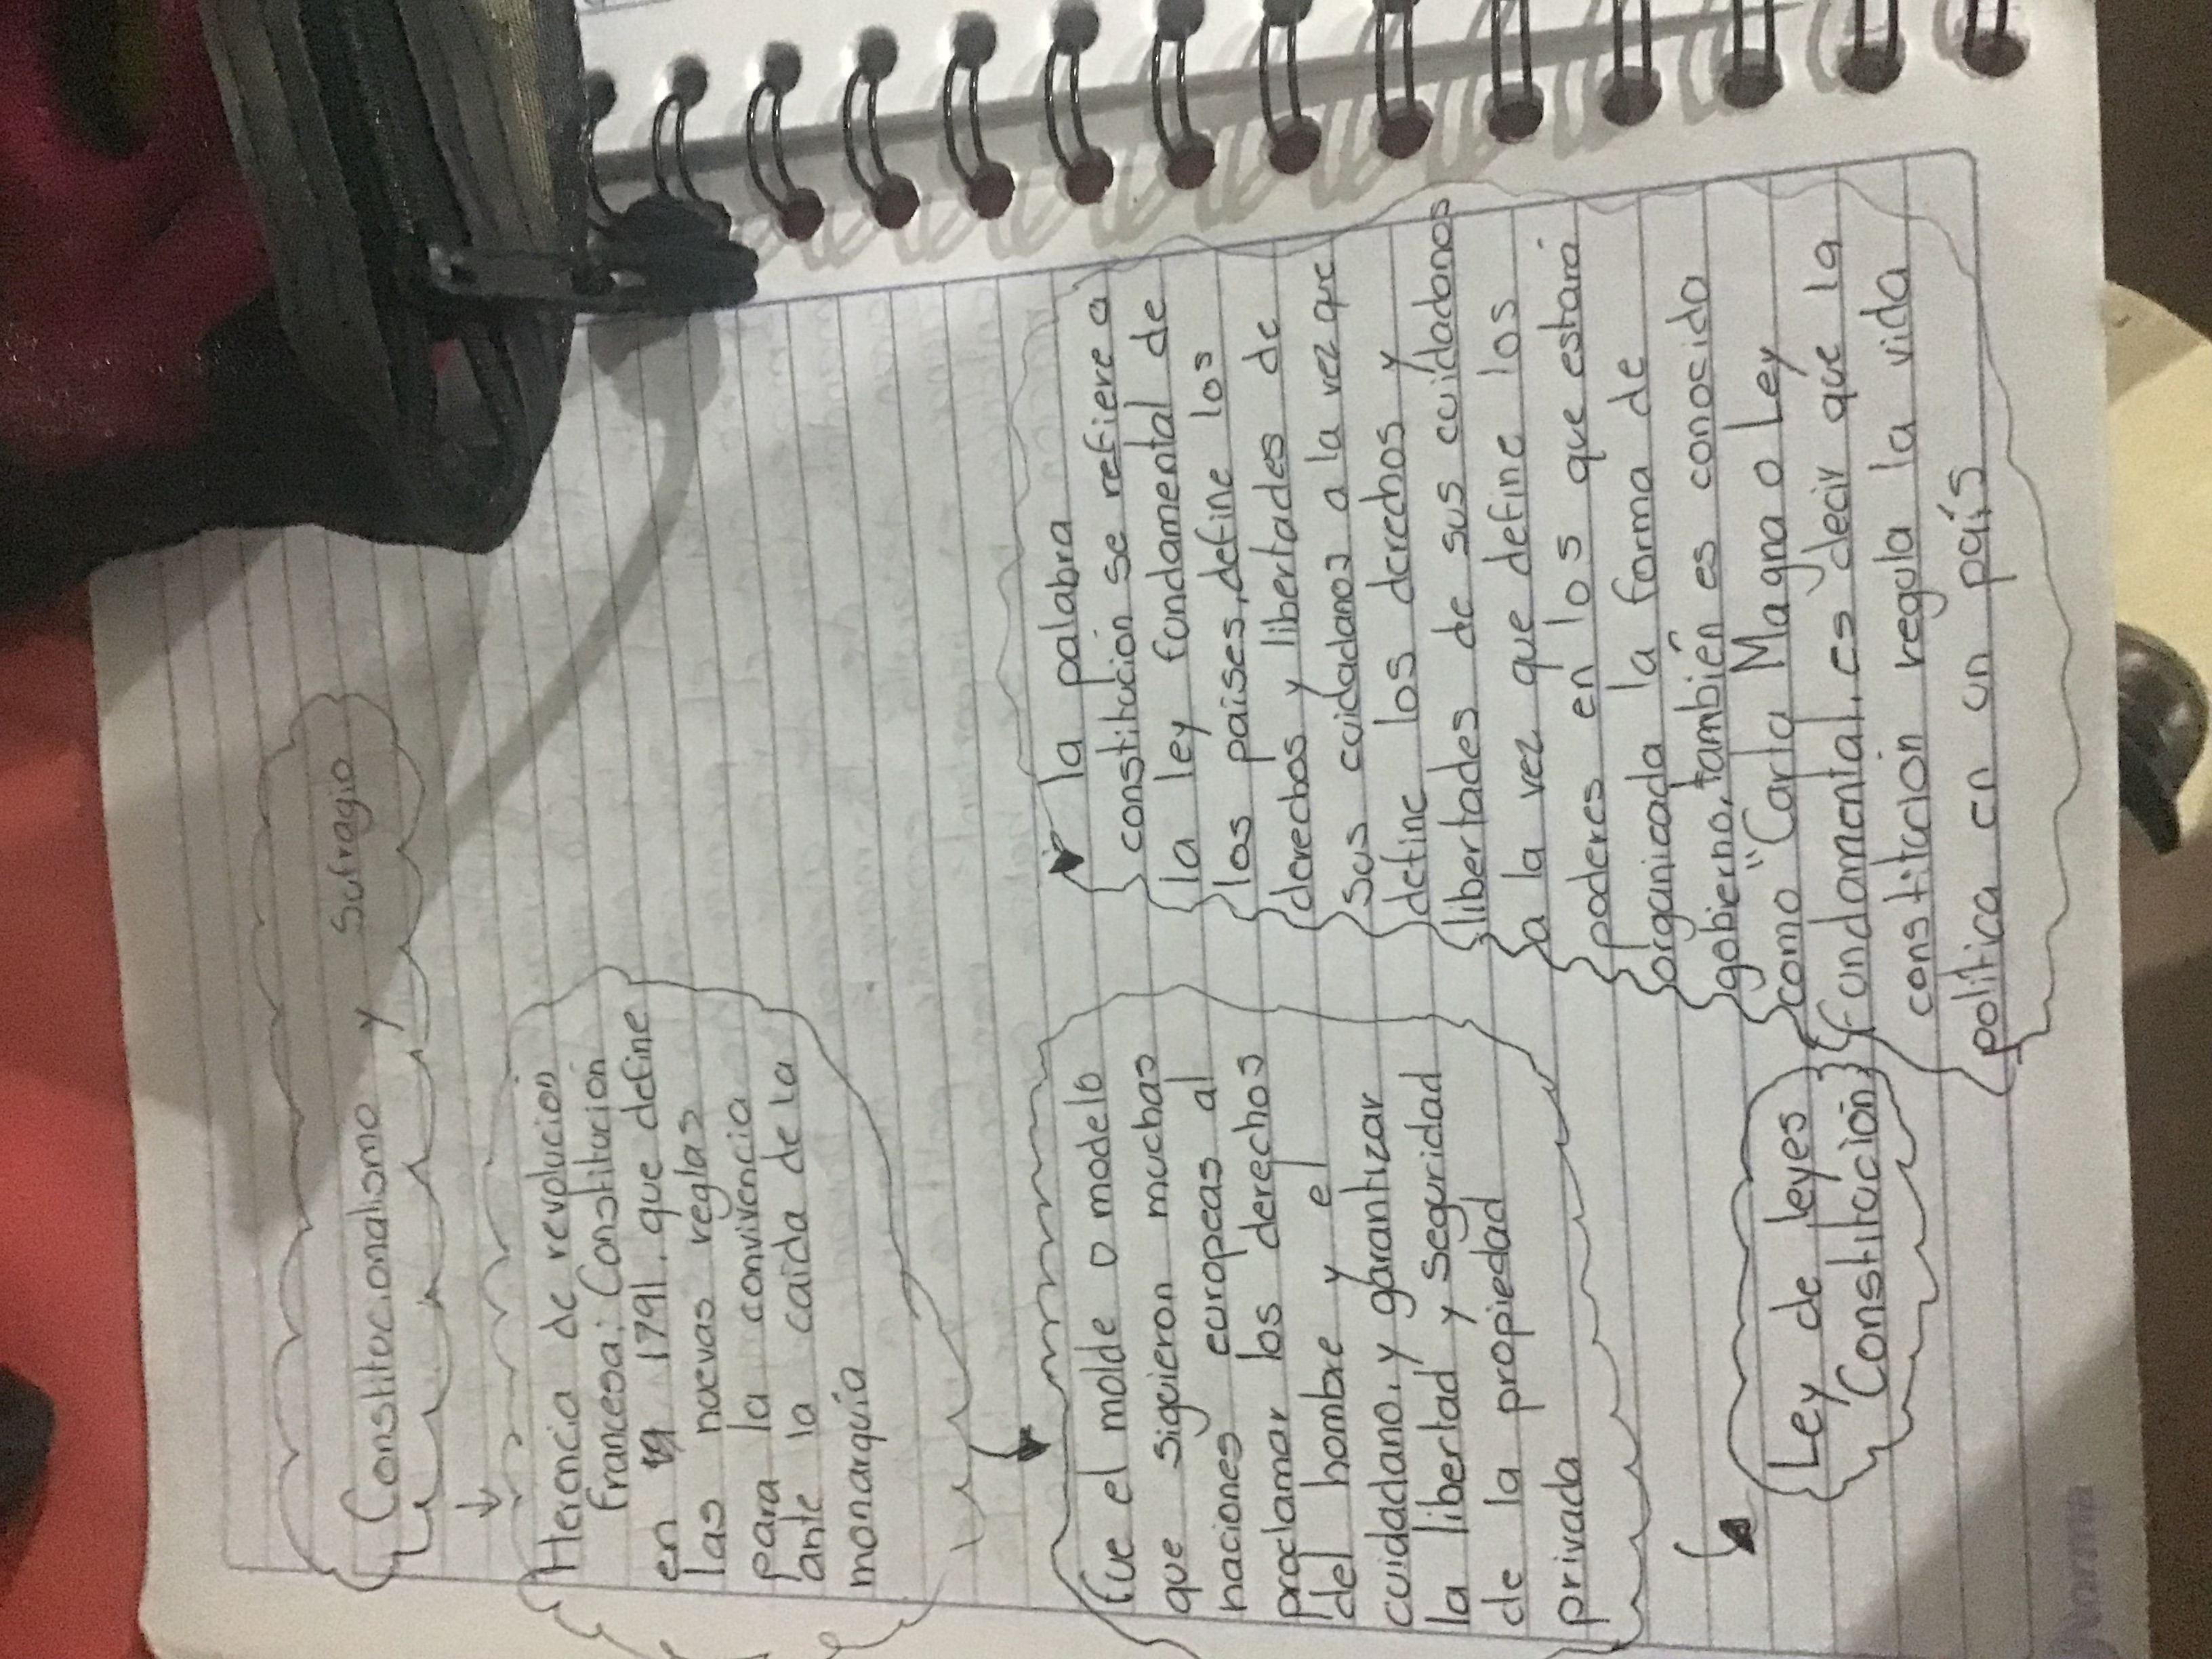 Constitucionalismo y Sufragio
Herencia de revolucion
francesa: Constitución
en 1791. que define
las nuevas reglas
para la convivencia
ante la caída de la
monarquía
Fue el molde o modelo
que siguieron muchas
naciones europeas al
proclamar los derechos
del hombre y el
cuidadano, y garantizar
la libertad y seguridad
de la propiedad
privada
Ley de leyes
Constitución
la palabra
constitución se refiere a
la ley fundamental de
los paises, define los
derechos y libertades de
sus cuidadanos a la vez que
define los derechos y
libertades de sus cuidadanos
a la vez que define los
poderes en los que estará
organicada la forma de
gobierno, también es conosida
como "Carta Magna o Ley
fundamental, es decir que la
constitución regula la vida
politica en un país
Norma